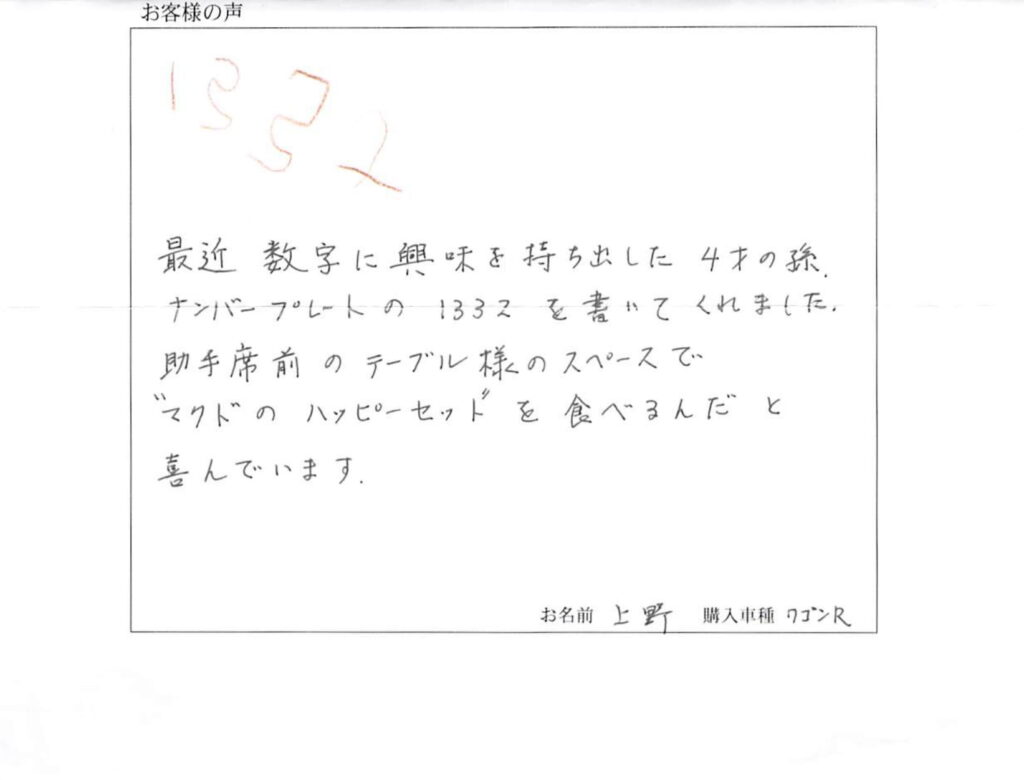 お客様の声
1332
最近 数字に興味を持ち出した 4才の孫.
ナンバープレートの 1332 を書いてくれました.
助手席前のテーブル様のスペースで
"マクドの ハッピーセット" を食べるんだ と
喜んでいます.
お名前 上野 購入車種 ワゴンR